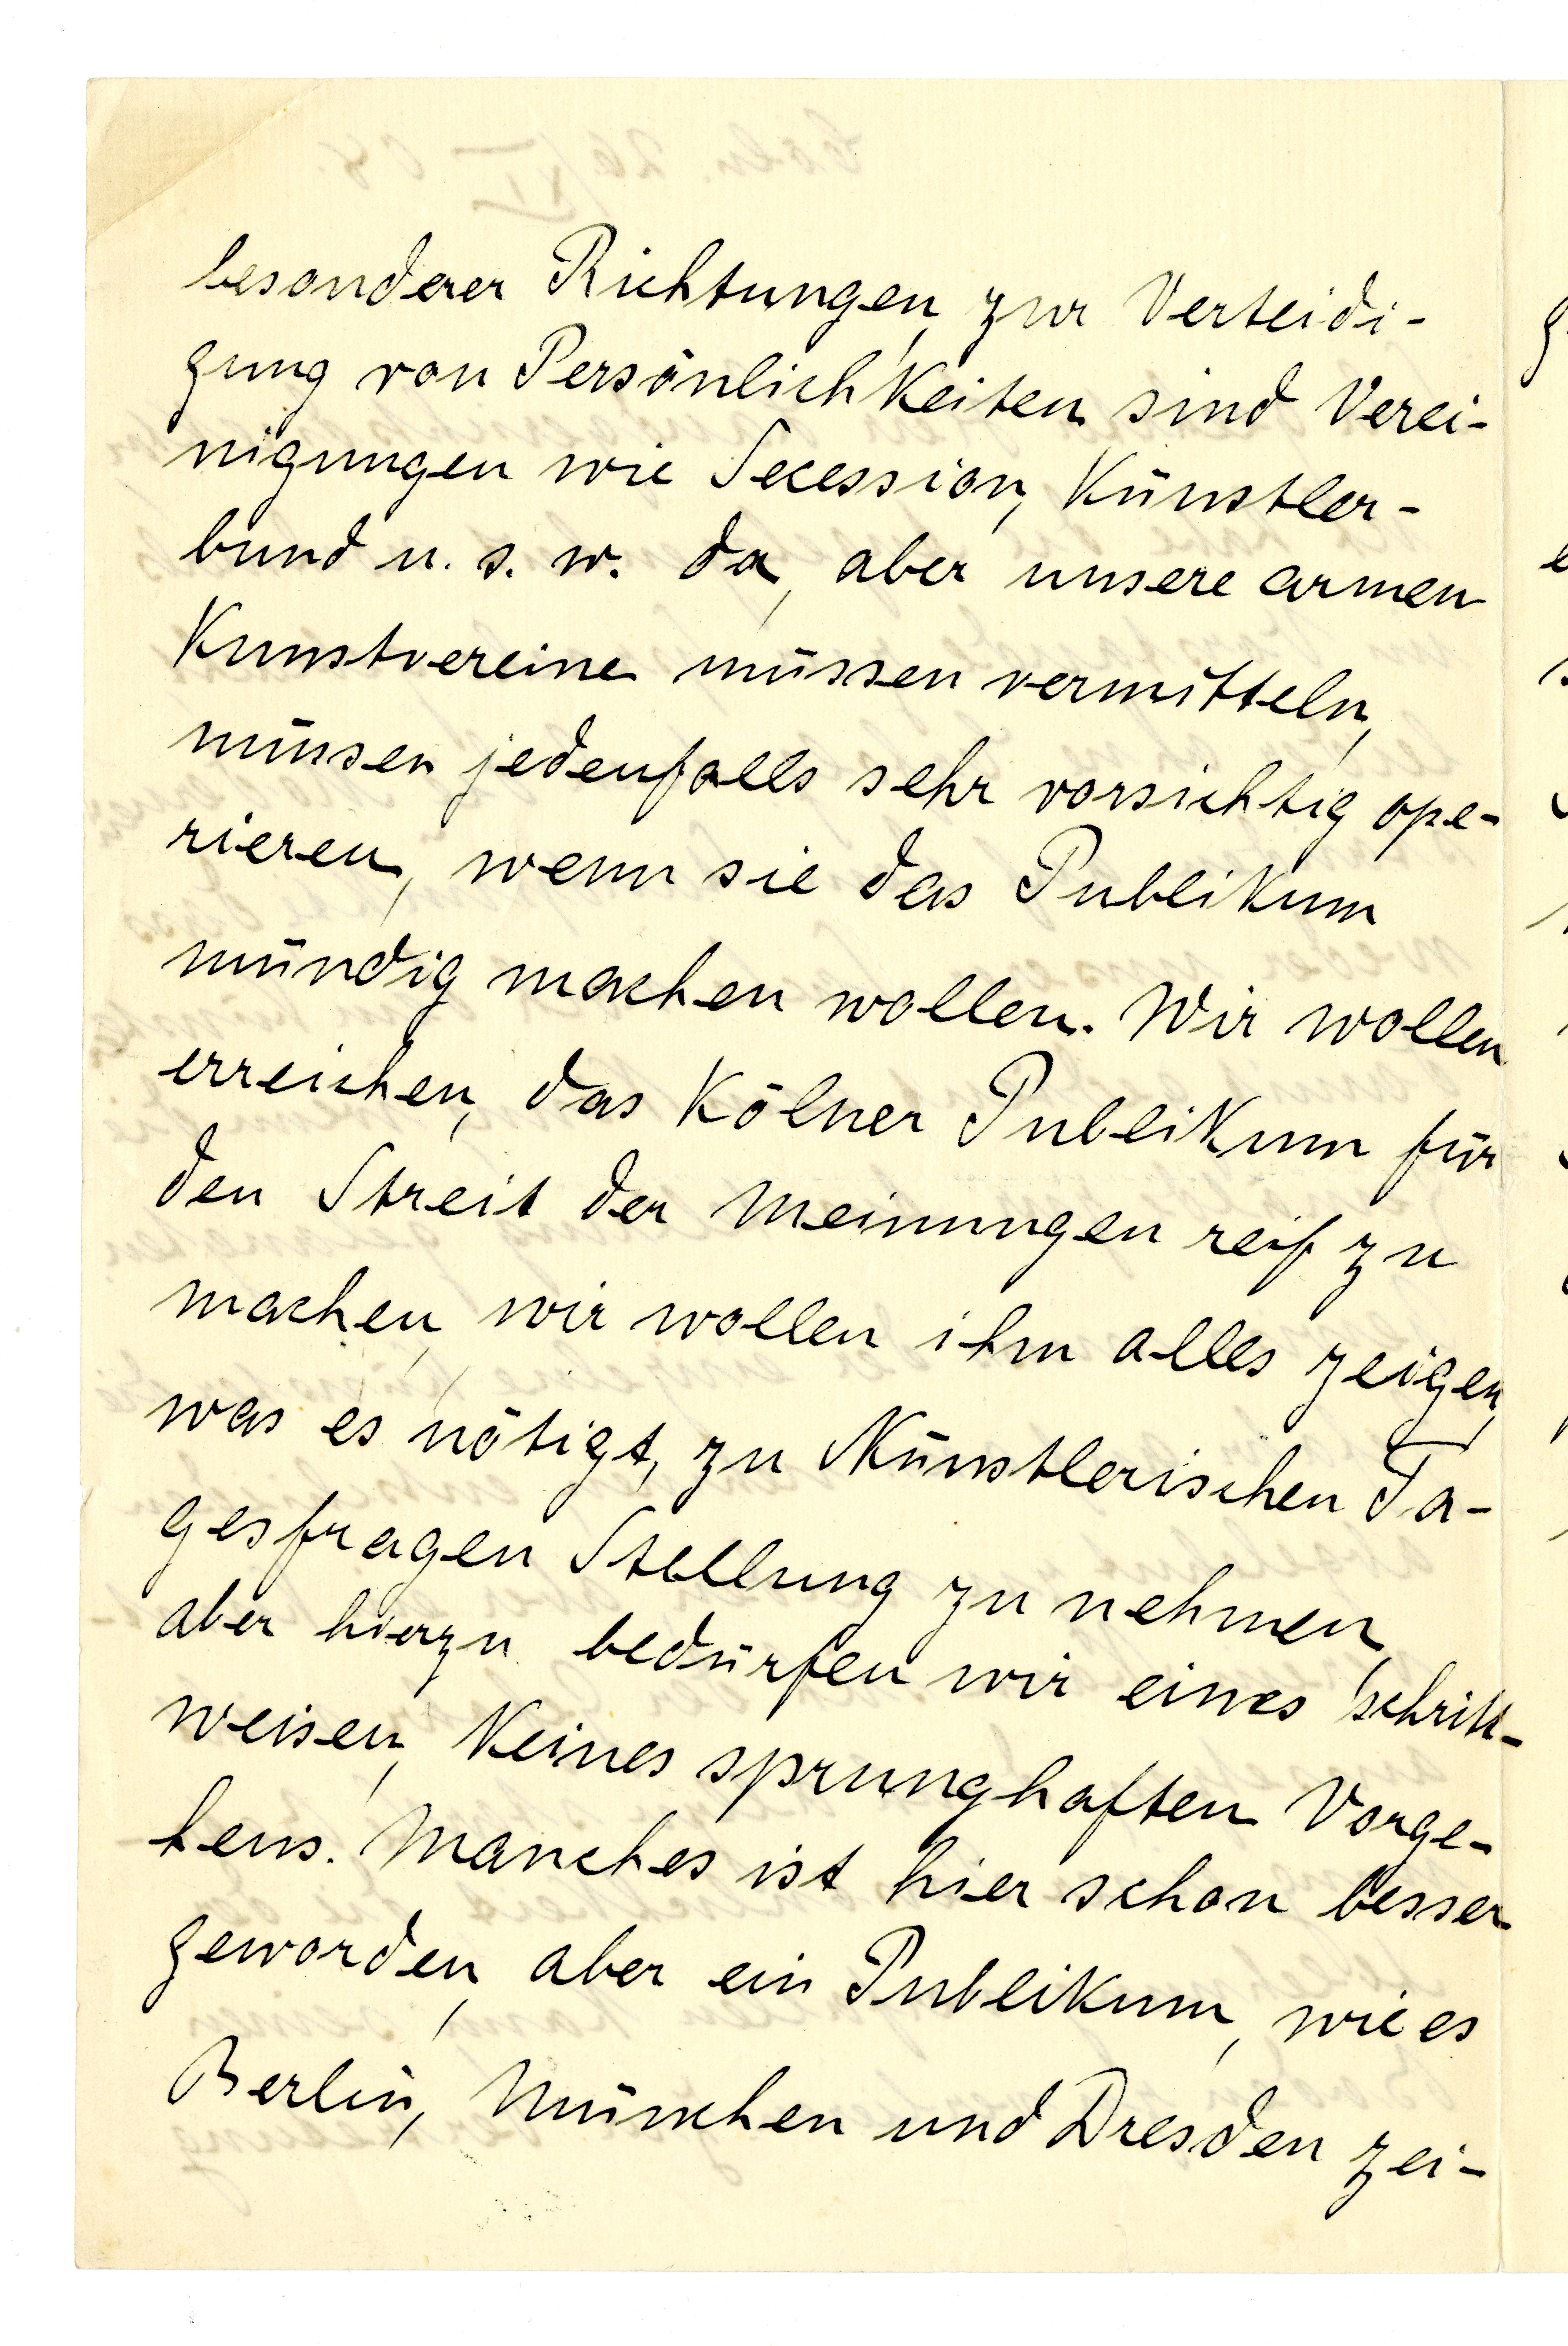 besonderer Richtungen, zur Verteidi-
gung von Persönlichkeiten sind Verei-
nigungen wie Secession, Künstler-
bund u. s. w. da, aber unsere armen
Kunstvereine müssen vermitteln,
müssen jedenfalls sehr vorsichtig ope-
rieren, wenn sie das Publikum
mündig machen wollen. Wir wollen
erreichen, das Kölner Publikum für
den Streit der Meinungen reif zu
machen, wir wollen ihm alles zeigen,
was es nötigt, zu künstlerischen Ta-
gesfragen Stellung zu nehmen,
aber hierzu bedürfen wir eines schritt-
weisen, keines sprunghaften Vorge-
hens. Manches ist hier schon besser
geworden, aber ein Publikum, wie es
Berlin, München und Dresden zei-